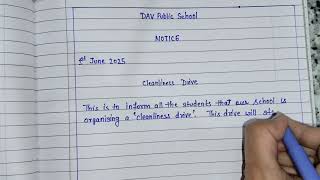 DAV Public School
NOTICE
1st June 2025
Cleanliness Drive
This is to inform all the students that our school is
organising a 'cleanliness drive'. This drive will